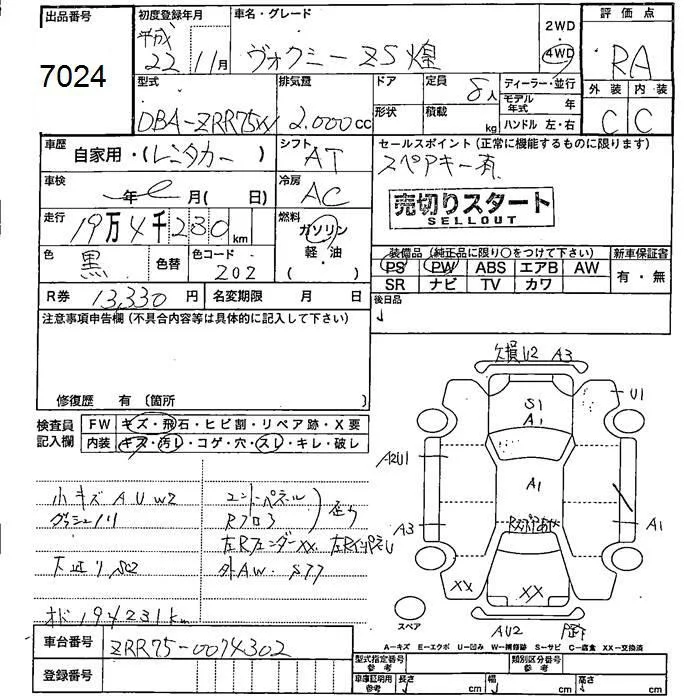 出品番号
7024
初度登録年月
平成
22 11月
車名・グレード
ヴォクシー ZS煌
2WD
・
4WD
評価点
RA
型式
DBA-ZRR75W
排気量
2.000cc
ドア
形状
定員
8人
積載
kg
ディーラー・並行
モデル年式 年
ハンドル 左・右
外装 内装
C C
車歴
自家用・(レンタカー)
シフト
AT
セールスポイント(正常に機能するものに限ります)
スペアキー有
車検
年 月( 日)
冷房
AC
売切りスタート
SELLOUT
走行
19万4千230km
燃料
ガソリン
軽・油
・( )
色
黒
色替
色コード
202
装備品(純正品に限り○をつけて下さい)
PS PW ABS エアB AW
SR ナビ TV カワ
新車保証書
有・無
R券 13,330円
名変期限 月 日
後日品
注意事項申告欄(不具合内容等は具体的に記入して下さい)
修復歴 有 〔箇所 〕
検査員
記入欄
FW キズ・飛石・ヒビ割・リペア跡・X要
内装 キズ・汚レ・コゲ・穴・スレ・キレ・破レ
小キズ A U W2
下廻り S2
オド 194231km
Rフロア
左Rフェンダー XX. 左Rインパネ U
外AW. S77
欠損 U2 A3
U1
S1
A1
A2U1
A1
A3
A1
XX
XX
AU2
スペア
A=キズ E=エクボ U=凹み W=補修跡 S=サビ C=腐食 XX=交換済
車台番号 ZRR75-0074302
登録番号
型式指定番号
参考
類別区分番号
参考
車庫証明用
参考
長さ cm
幅 cm
高さ cm